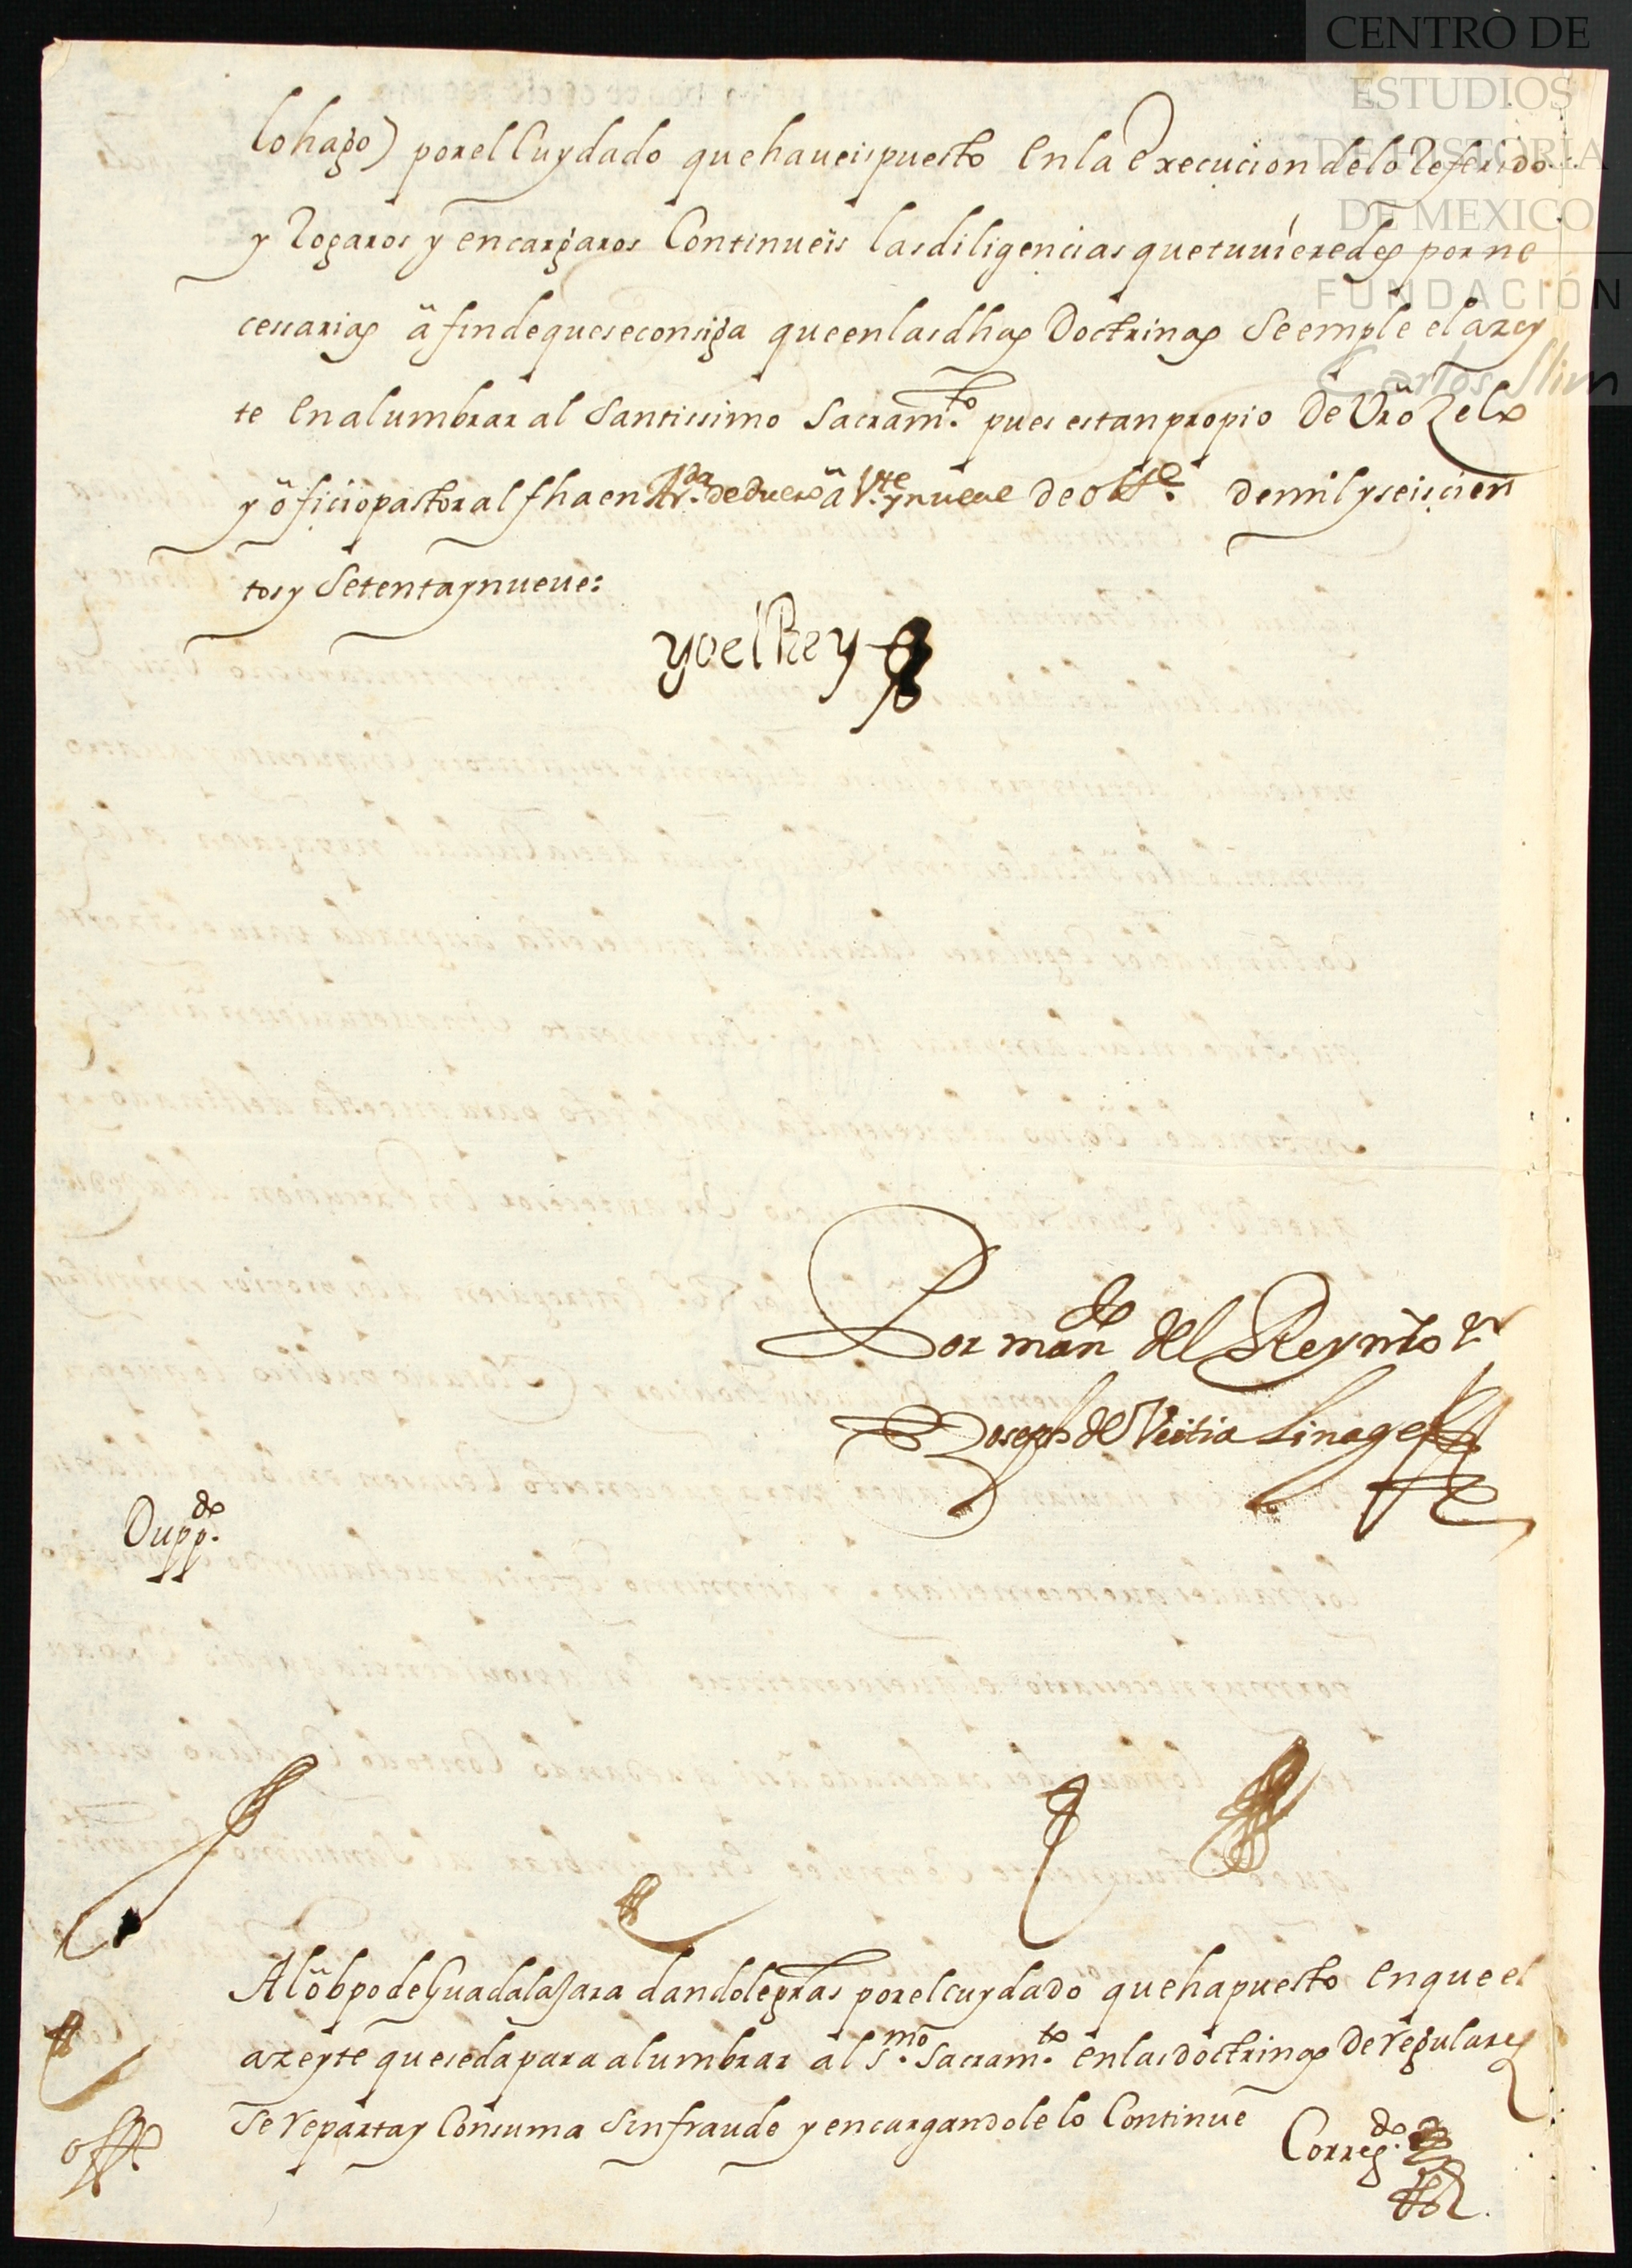 CENTRO DE
ESTUDIOS
DE HISTORIA
DE MEXICO
FUNDACIÓN
Carlos Slim
lo hago) por el Cuydado que haueis puesto en la execucion de lo Referido
y Rogaros y encargaros Continueis las diligencias que tuuieredes por ne
cessarias â fin de que se consiga que en las dhas Doctrinas se emple el azey
te en alumbrar al Santissimo Sacramto. pues es tan propio de Vro Zelo
y ôficio pastoral fha en Arda. de Duero â Vte. y nueue de octe. de mil y seiscien
tos y Setenta y nueue:
yo el Rey
Por mando del Rey nro sr
Joseph de Veitia Linage
Duppdo.
Al ôbpo de Guadalajara dandole gras por el cuydado que ha puesto en que el
azeyte que se da para alumbrar al Smo. Sacramto. en las doctrinas de regulares
se reparta y Consuma sin fraude y encargandole lo Continue
Corregdo.
offo.